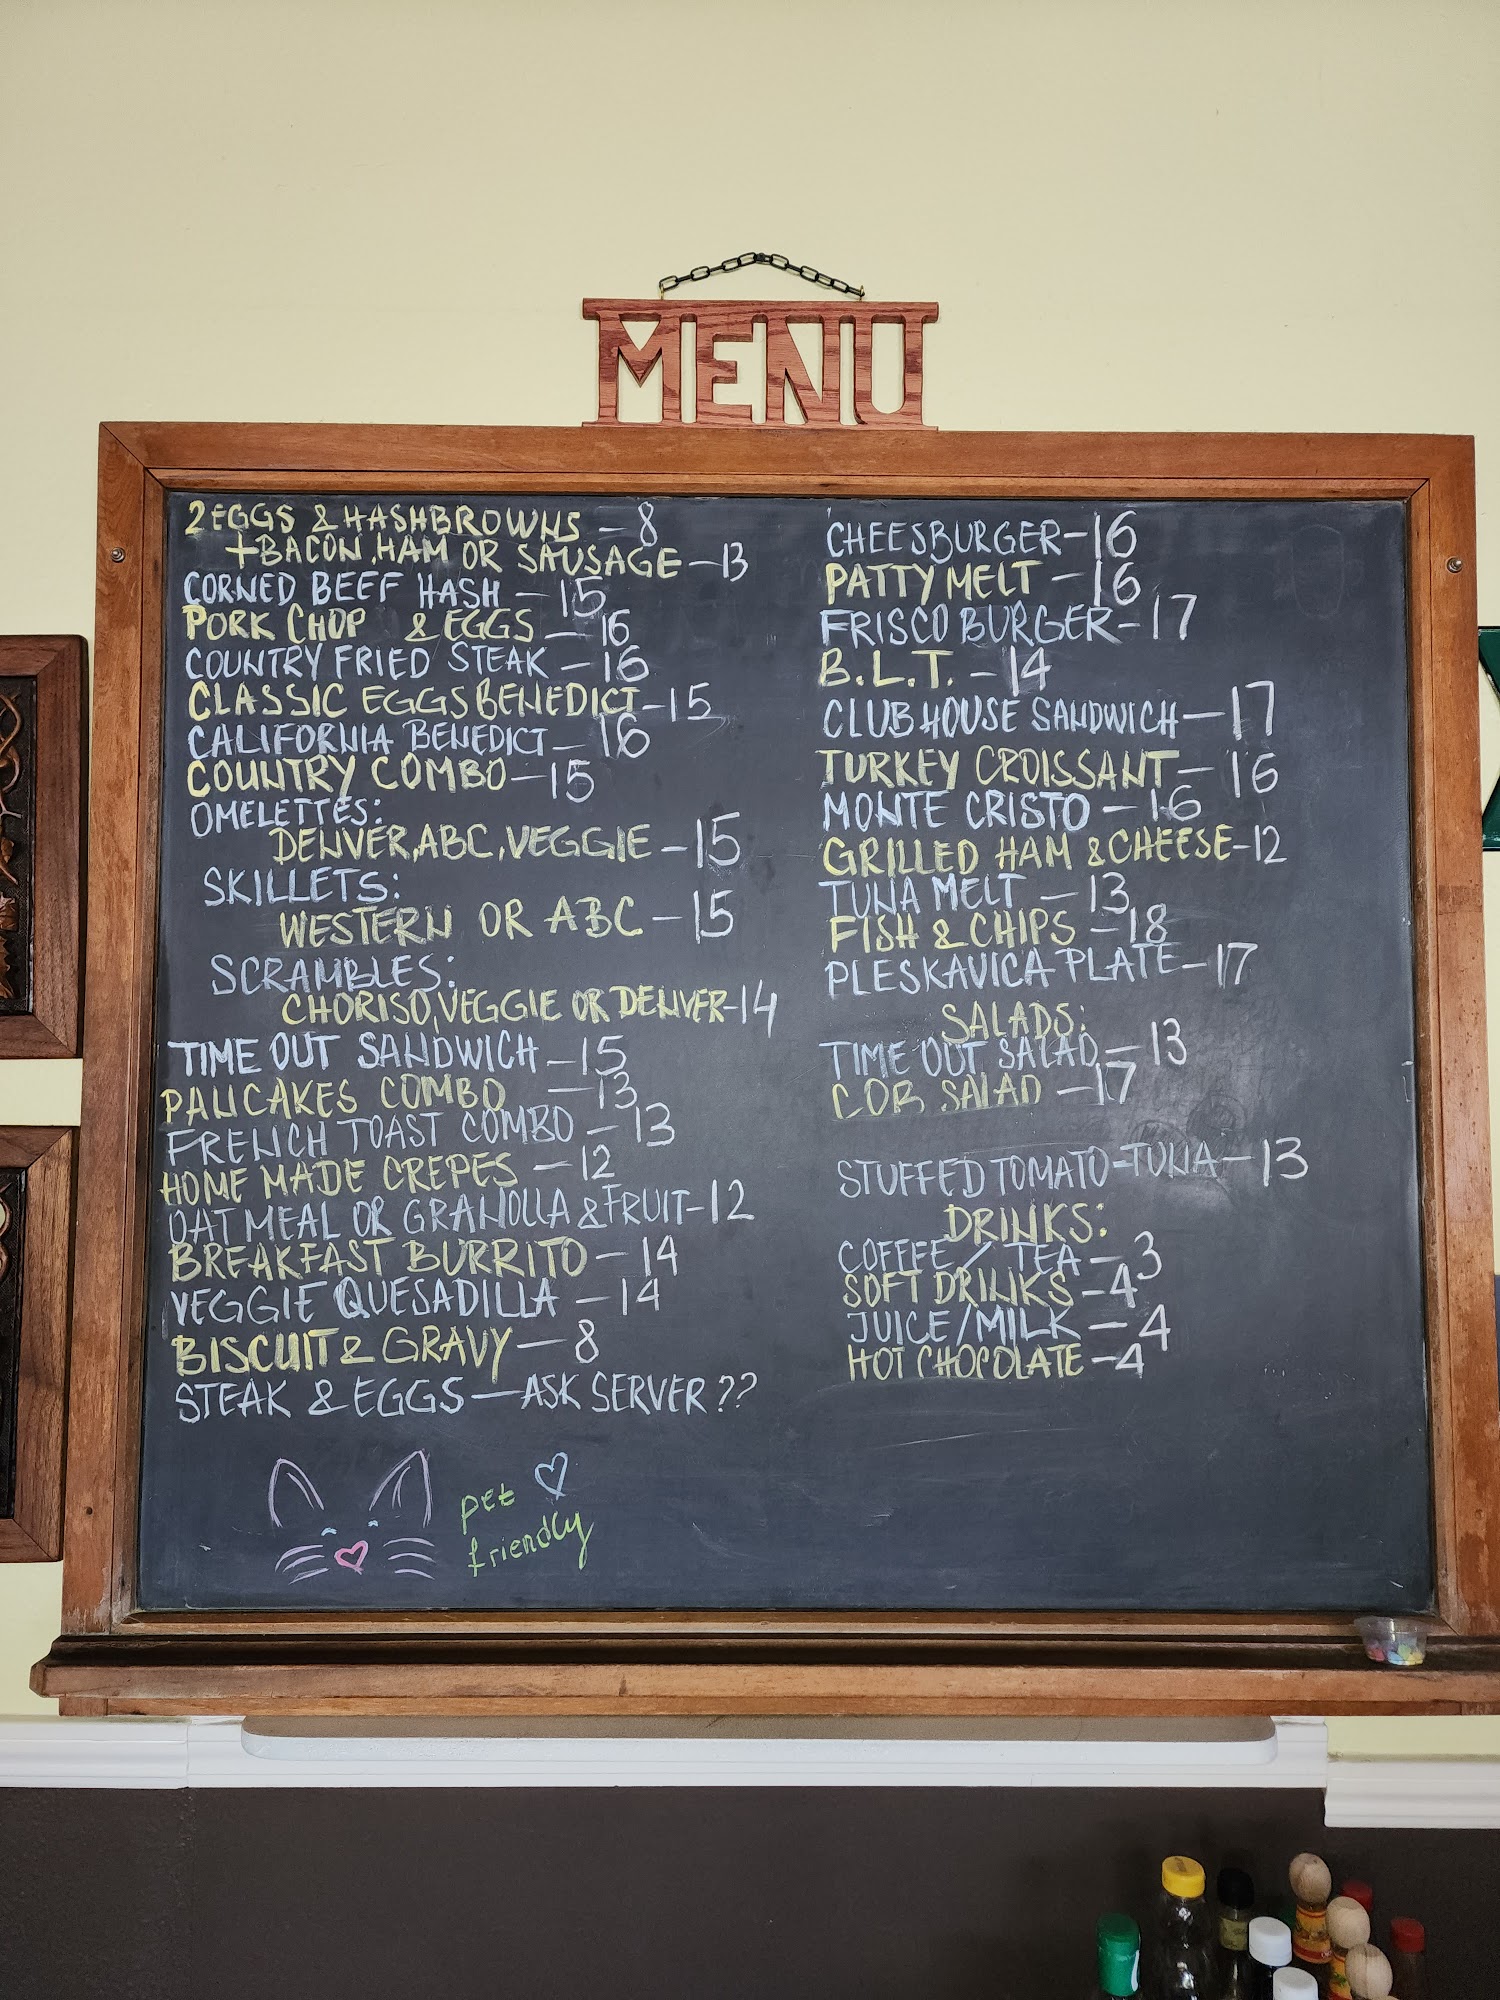 MENU
2 EGGS & HASHBROWNS — 8
+ BACON, HAM OR SAUSAGE — 13
CORNED BEEF HASH — 15
PORK CHOP & EGGS — 16
COUNTRY FRIED STEAK — 16
CLASSIC EGGS BENEDICT — 15
CALIFORNIA BENEDICT — 16
COUNTRY COMBO — 15
OMELETTES:
DENVER, ABC, VEGGIE — 15
SKILLETS:
WESTERN OR ABC — 15
SCRAMBLES:
CHORISO, VEGGIE OR DENVER - 14
TIME OUT SANDWICH — 15
PANCAKES COMBO — 13
FRENCH TOAST COMBO — 13
HOME MADE CREPES — 12
OATMEAL OR GRANOLLA & FRUIT - 12
BREAKFAST BURRITO — 14
VEGGIE QUESADILLA — 14
BISCUIT & GRAVY — 8
STEAK & EGGS — ASK SERVER ??
pet
friendly
CHEESBURGER — 16
PATTY MELT — 16
FRISCO BURGER - 17
B.L.T. — 14
CLUBHOUSE SANDWICH — 17
TURKEY CROISSANT — 16
MONTE CRISTO — 16
GRILLED HAM & CHEESE - 12
TUNA MELT — 13
FISH & CHIPS — 18
PLESKAVICA PLATE — 17
SALADS:
TIME OUT SALAD — 13
COB SALAD — 17
STUFFED TOMATO - TUNA — 13
DRINKS:
COFFEE / TEA — 3
SOFT DRINKS — 4
JUICE / MILK — 4
HOT CHOCOLATE — 4